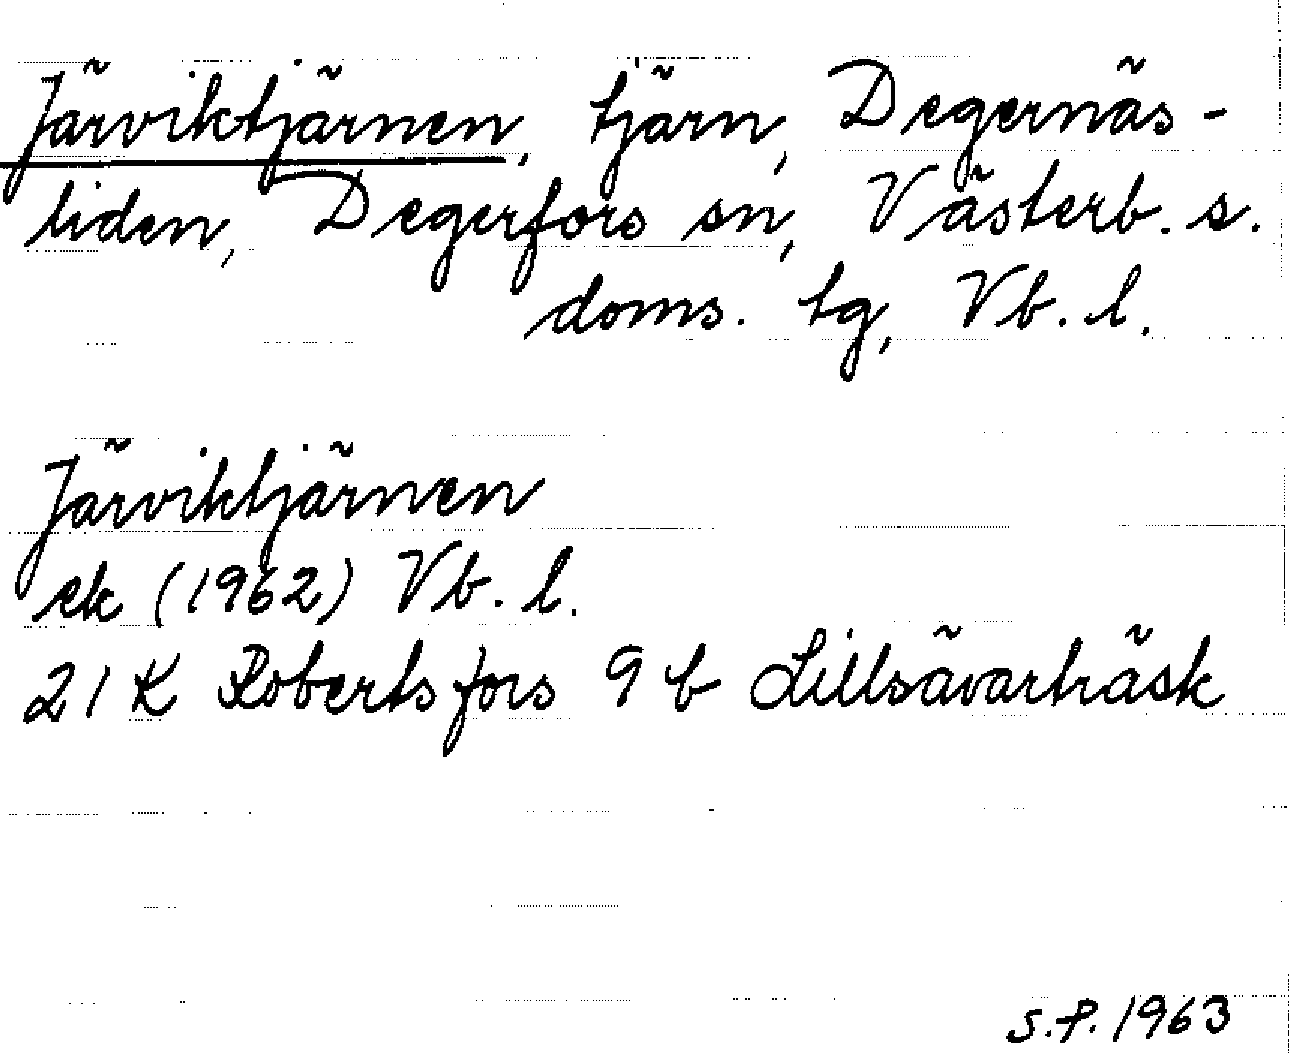 Järviktjärnen, tjärn, Degernäs-
liden, Degerfors sn, Västerb. s.
doms. tg, Vb. l.
Järviktjärnen
ek (1962) Vb. l.
21 K Robertsfors 9 b Lillsävarträsk
S.P. 1963